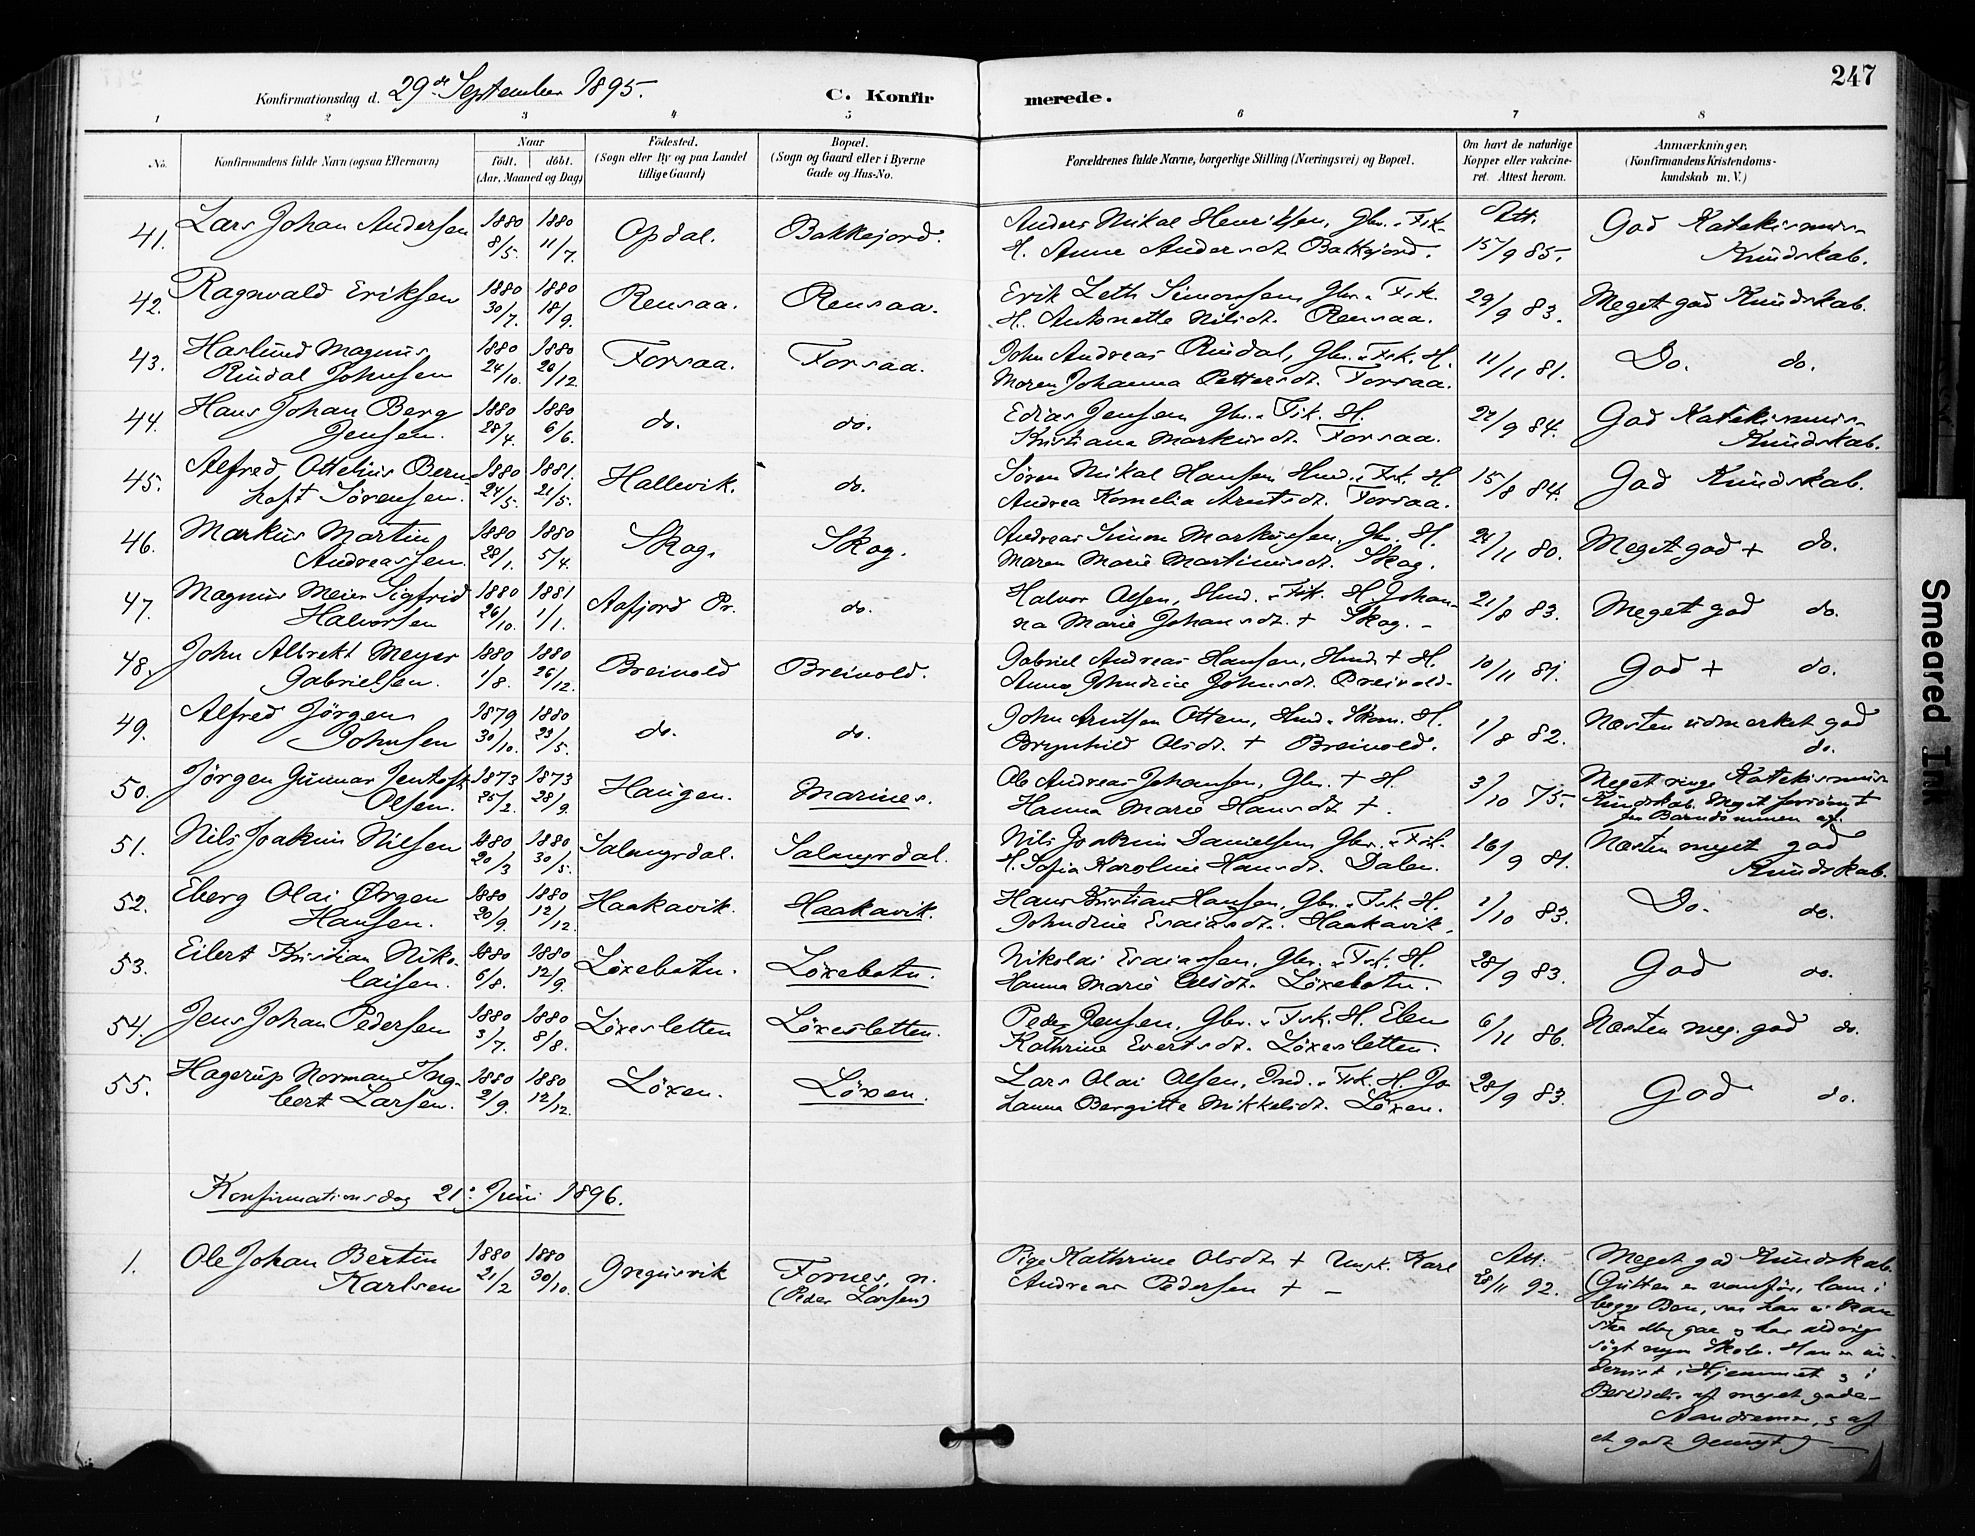 247
Konfirmationsdag d. 29de September 1895.
C. Konfir merede.
1 2 3 4 5 6 7 8
No. Konfirmandens fulde Navn (ogsaa Efternavn) Naar født. døbt. (Aar, Maaned og Dag) Fødested. (Sogn eller By og paa Landet tillige Gaard) Bopæl. (Sogn og Gaard eller i Byerne Gade og Hus-No. Forældrenes fulde Navne, borgerlige Stilling (Næringsvei) og Bopæl. Om havt de naturlige Kopper eller vakcineret. Attest herom. Anmærkninger. (Konfirmandens Kristendomskundskab m. V.)
41. Lars Johan Andersen 1880 8/5. 1880 11/7. Opdal. Bakkejord. Anders Mikal Henriksen, Gbr. & Fisk.
H. Anne Andersdt. Bakkejord. Att. 15/9 85. God Katekismus-
Kundskab.
42. Ragnvald Eriksen 1880 30/7. 1880 18/9. Rensaa. Rensaa. Erik Leth Simonsen Gbr. & Fsk.
H. Antonette Nilsdt. Rensaa. 29/9 83. Meget god Kundskab.
43. Haslund Magnus
Rindal Johnsen 1880 24/10. 1880 26/12 Forsaa. Forsaa. John Andreas Rindal, Gbr. & Fsk. H.
Maren Johanna Pettersdt. Forsaa. 11/11 81. Do. do.
44. Hans Johan Berg
Jensen. 1880 28/4. 1880 6/6. do. do. Edias Jensen Gbr. & Fsk. H.
Kristiana Markusdt. Forsaa. 27/9 84. God Katekismus-
Kundskab.
45. Alfred Ottelius Bern-
hoft Sørensen. 1880 24/5. 1881. 21/5. Hallevik. do. Søren Mikal Hansen Hmd. & Fsk. H.
Andrea Kornelia Arntsdt. Forsaa. 15/8 84. God Kundskab.
46. Markus Martin
Andreassen. 1880 28/1. 1880 5/4. Skog. Skog. Andreas Simon Markussen, Gbr. H.
Maren Marie Martinusdt. Skog. 24/11 80. Meget god + do.
47. Magnus Meier Sigfrid
Halvorsen 1880 26/10. 1881 1/1. Aafjord Pr. do. Halvor Olsen, Hmd. & Fsk. H. Johan-
na Marie Johansdt. + Skog. - 21/8 83. Meget god do.
48. John Albrekt Meyer
Gabrielsen. 1880 1/8. 1880 26/12. Breivold Breivold. Gabriel Andreas Hansen, Hmd. + H.
Anna Johndine Johnsdt. Breivold. 10/11 81. God + do.
49. Alfred Jørgen
Johnsen 1879 30/10. 1880 23/5. do. do. John Arntsen Otten, Hmd. & Skom. H.
Brynhild Olsdt. + Breivold. 1/8 82. Næsten udmærket god
do.
50. Jørgen Gunnar Jentoft
Olsen. 1873 25/2. 1873 28/9. Haugen. Marines. Ole Andreas Johansen, Gbr. + H.
Hanna Marie Hansdt. +. 3/10 75. Meget ringe Katekismus
Kundskab. Meget forsømt
fra Barndommen af.
51. Nils Joakim Nilsen 1880 20/3 1880 30/5. Salmyrdal. Salmyrdal. Nils Joakim Danielsen Gbr. & Fsk.
H. Sofia Karoline Hansdt. Dalen. 16/9 81. Næsten meget god
Kundskab.
52. Eberg Olai Ørgen
Hansen. 1880 20/9. 1880 12/12. Haakavik. Haakavik. Hans Kristian Hansen, Gbr. & Fsk. H.
Johndine Esaiasdt. Haakavik. 1/10 83. Do. do.
53. Eilert Kristian Niko-
laisen. 1880 6/8. 1880 12/9. Löxebotn. Löxebotn. Nikolai Esaiassen, Gbr. & Fsk. H.
Hanna Marie Olsdt. Löxebotn. 28/9 83. God do.
54. Jens Johan Pedersen 1880 3/7. 1880 8/8. Löxesletten Löxesletten. Peder Jensen, Gbr. & Fsk. H. Elen
Kathrine Evertsdt. Löxesletten. 6/11 86. Næsten meg. god do.
55. Hagerup Norman Ing-
bert Larsen. 1880 2/9. 1880 12/12. Löxen. Löxen. Lars Olai Olsen, Ind. & Fsk. H. Jo
hanna Bergitte Mikkelsdt. Löxen. 28/9 83. God do.
Konfirmationsdag 21. Juni 1896.
1. Ole Johan Bertin
Karlsen 1880 21/2 1880 30/10. Gregusvik Fornes, n.
(Peder Larsen) Pige Kathrine Olsdt. + Ungk. Karl
Andreas Pedersen + - Att. 28/11 92. Meget god Kundskab.
(Gutten er vanfør, lam i
begge Ben, saa han ei kan
staa eller gaa og har aldrig
søgt nogen Skole. Han er un-
dervist i Hjemmet og i
Besiddelse af meget gode
Aandsevner, og af
et godt Gemyt)
Smeared Ink